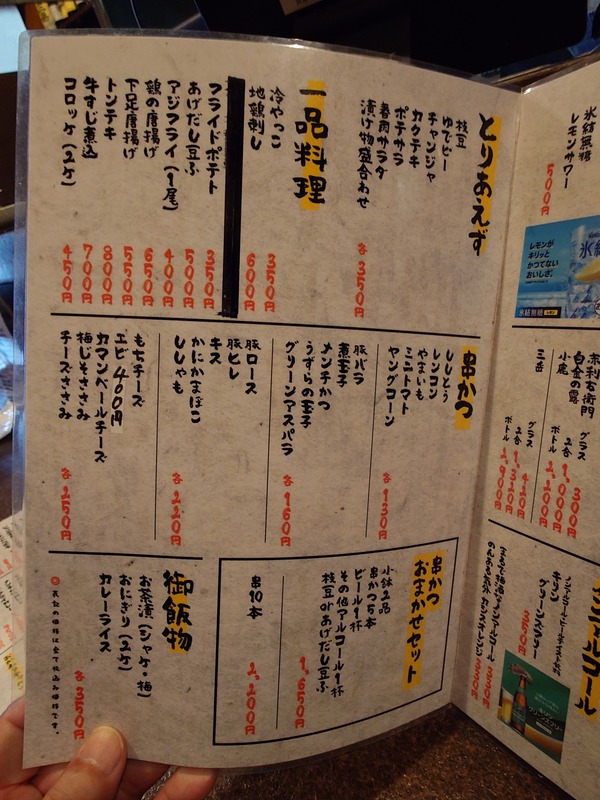 とりあえず
枝豆
ゆでピー
チャンジャ
カクテキ
ポテサラ
春雨サラダ
漬け物盛合わせ
各350円
一品料理
冷やっこ 350円
地鶏刺し 600円
フライドポテト 350円
あげだし豆ふ 500円
アジフライ(1尾) 400円
鶏の唐揚げ 650円
下足唐揚げ 550円
トンテキ 800円
牛すじ煮込 700円
コロッケ(2ケ) 450円
串かつ
ししとう
レンコン
やまいも
ミニトマト
ヤングコーン
各130円
豚バラ
煮玉子
メンチかつ
うずらの玉子
グリーンアスパラ
各160円
豚ロース
豚ヒレ
キス
かにかまぼこ
ししゃも
各220円
もちチーズ
エビ400円
カマンベールチーズ
梅じそささみ
チーズささみ
各250円
串かつ
おまかせセット
小鉢2品
串かつ5本
ビール1杯
その他アルコール1杯
枝豆orあげだし豆ふ
1,650円
串10本
2,200円
御飯物
お茶漬(シャケ・梅)
おにぎり(2ケ)
カレーライス
各350円
氷結無糖
レモンサワー
500円
レモンが
キリッと
かつてない
おいしさ。
氷結無糖
赤利右衛門
白金の露
小鹿
グラス 300円
2合 1,000円
ボトル 2,200円
三岳
グラス 420円
2合 1,320円
ボトル 2,900円
キリン
グリーンズフリー
350円